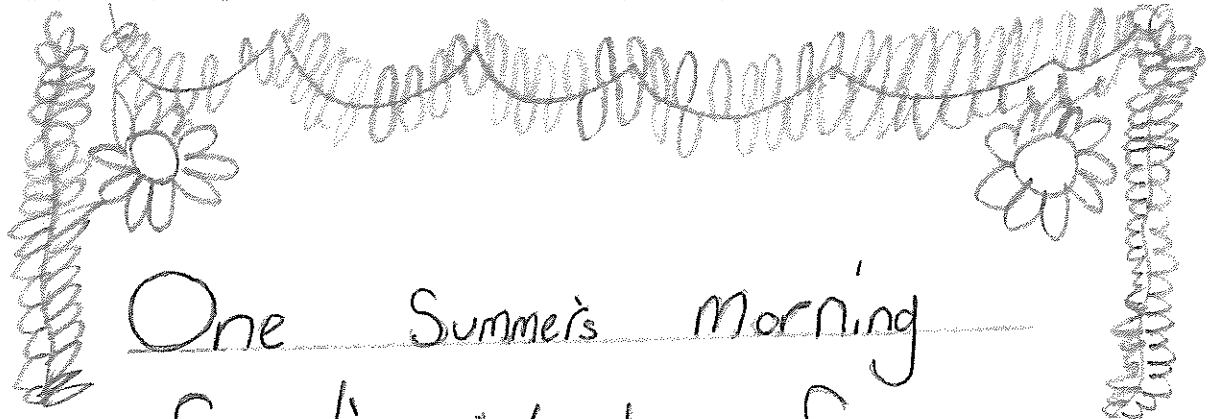 One Summer's morning